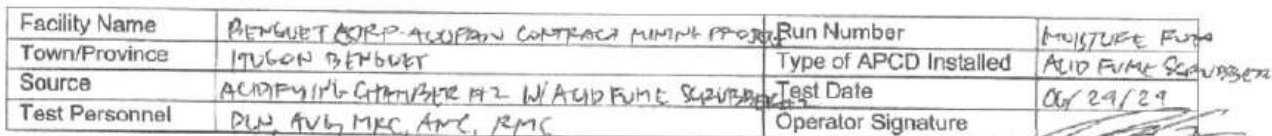 Facility Name BENGUET CORP-ACUPAN CONTRACT MINING PROJ Run Number MOISTURE RUN
Town/Province ITOGON BENGUET Type of APCD Installed ACID FUME SCRUBBER
Source ACIDIFYING CHAMBER #2 W/ ACID FUME SCRUBBER Test Date 06/24/24
Test Personnel DLN, AVG, MKC, AMC, RMC Operator Signature